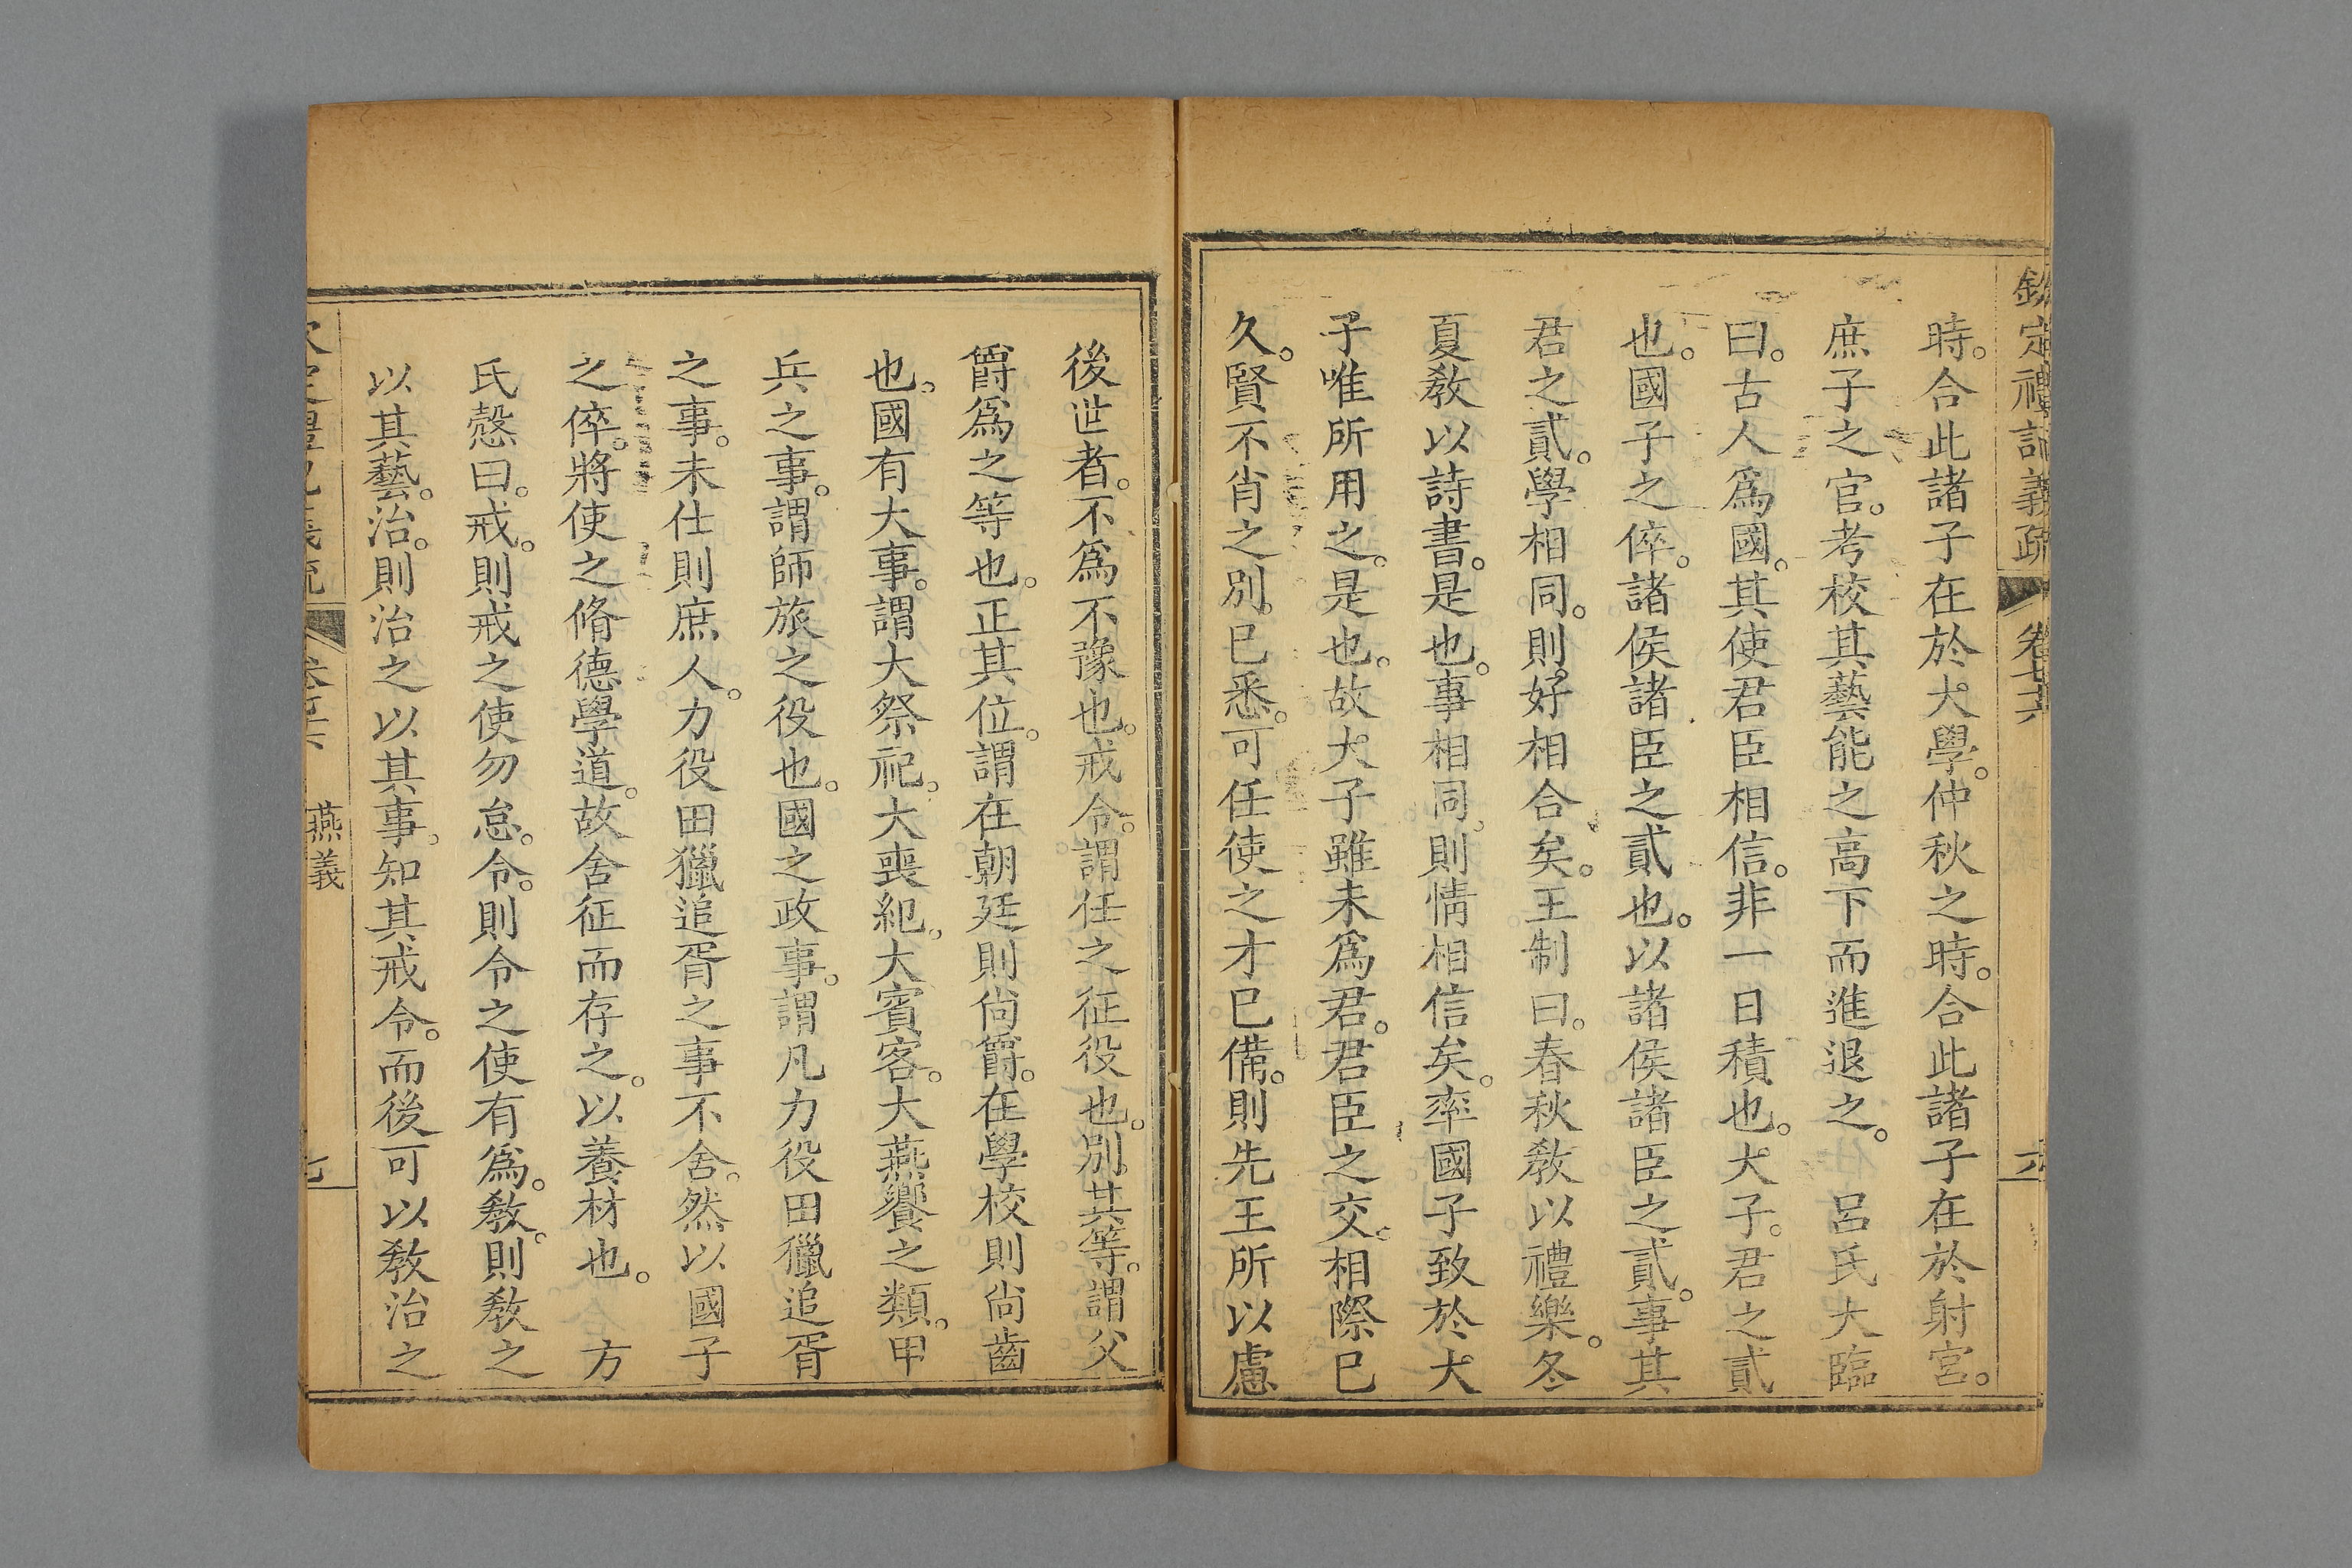 欽定禮記義疏 卷七十六 六
時。合此諸子在於大學。仲秋之時。合此諸子在於射宮。
庶子之官。考校其藝能之高下而進退之。 呂氏大臨
曰。古人爲國。其使君臣相信。非一日積也。大子。君之貳
也。國子之倅。諸侯諸臣之貳也。以諸侯諸臣之貳。事其
君之貳。學相同。則好相合矣。王制曰。春秋敎以禮樂。冬
夏敎以詩書。是也。事相同。則情相信矣。率國子致於大
子唯所用之。是也。故大子雖未爲君。君臣之交。相際已
久。賢不肖之別。已悉。可任使之才已備。則先王所以慮
後世者。不爲不豫也。戒令。謂任之征役也。別其等。謂父
爵爲之等也。正其位。謂在朝廷則尙爵。在學校則尙齒
也。國有大事。謂大祭祀。大喪紀。大賓客。大燕饗之類。甲
兵之事。謂師旅之役也。國之政事。謂凡力役田獵追胥
之事。未仕則庶人。力役田獵追胥之事不舍。然以國子
之倅。將使之脩德學道。故舍征而存之。以養材也。 方
氏慤曰。戒。則戒之使勿怠。令。則令之使有爲。敎。則敎之
以其藝。治。則治之以其事。知其戒令。而後可以敎治之
欽定禮記義疏 卷七十六 燕義 七